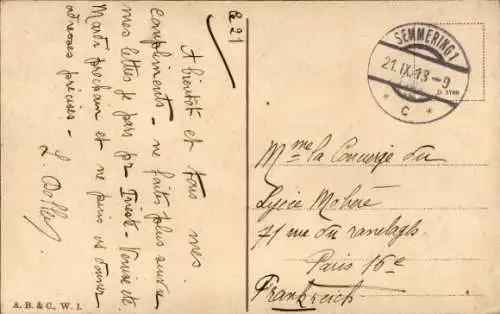 Le 21
A bientôt et tous mes
compliments - ne faites plus suivre
mes lettres je pars pr Trieste Venise etc
Mardi prochain et ne puis vs donner
adresses précises -
A. B. & C., W. I.
SEMMERING 1
21.IX.13-9
* C *
Mme la Concierge du
Lycée Molière
71 rue du ranelagh
Paris 16e
Frankreich